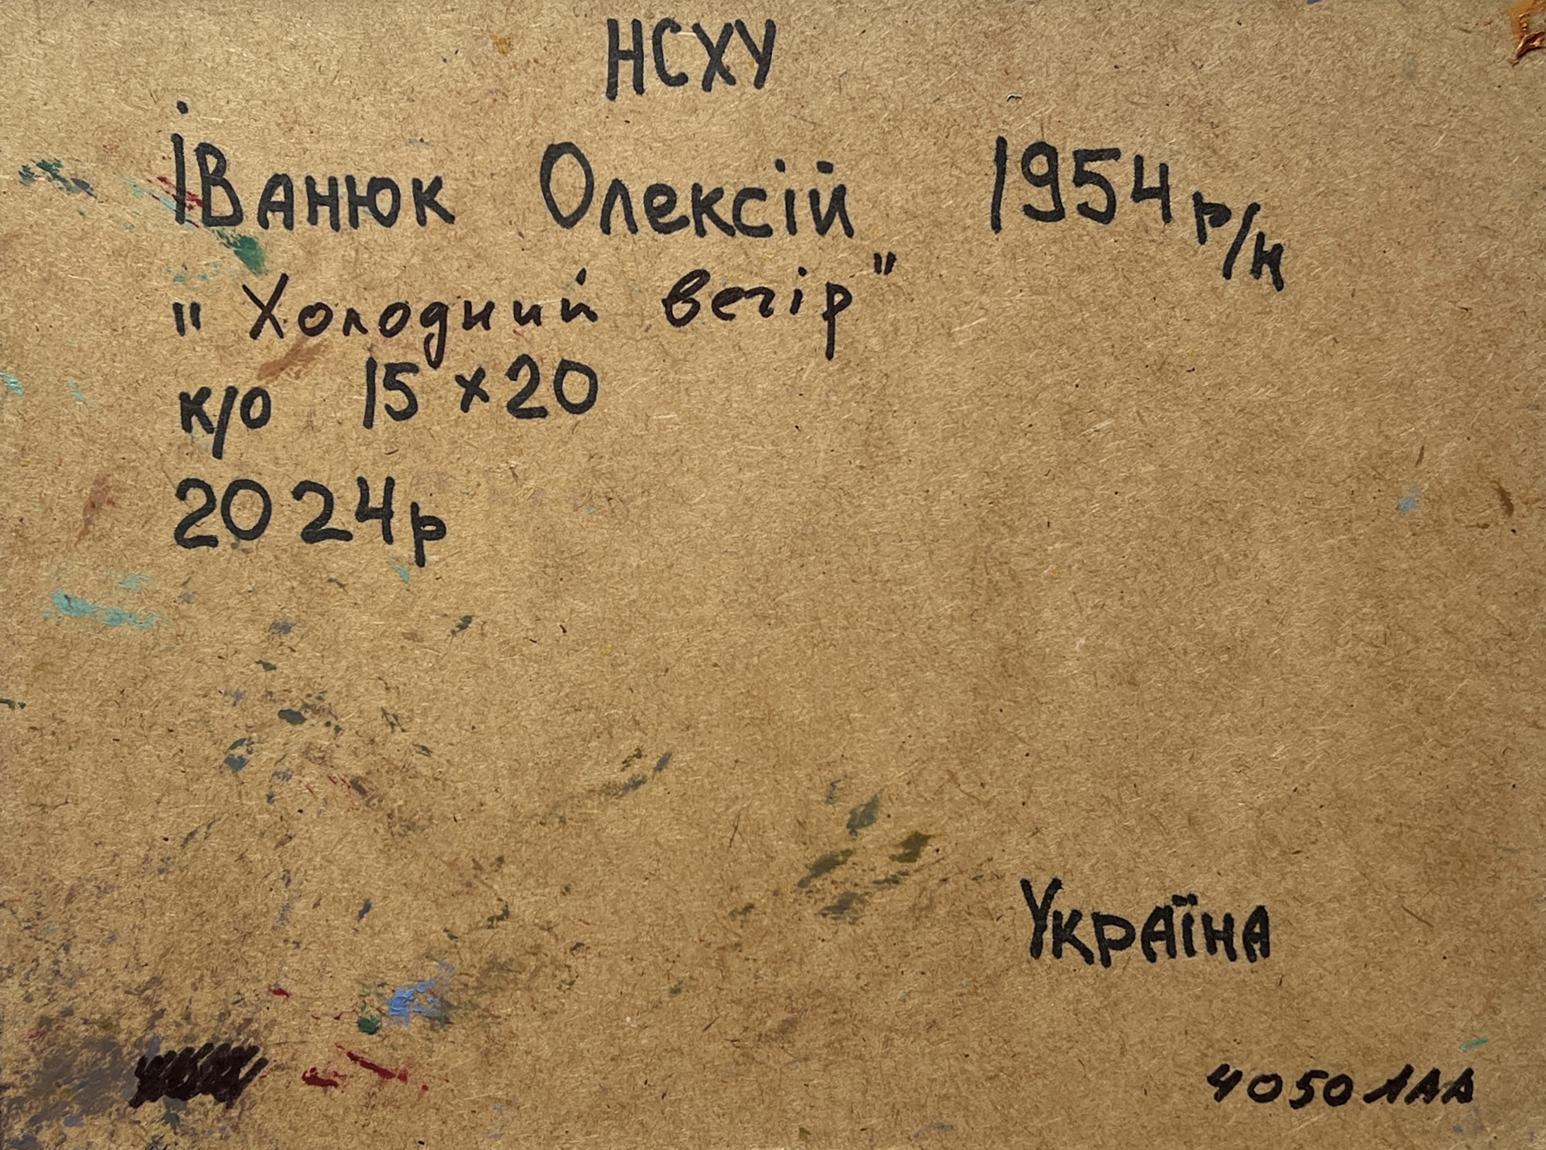 НСХУ
Іванюк Олексій 1954 р/н
"Холодний вечір"
к/о 15×20
2024р
Україна
4050ЛАА